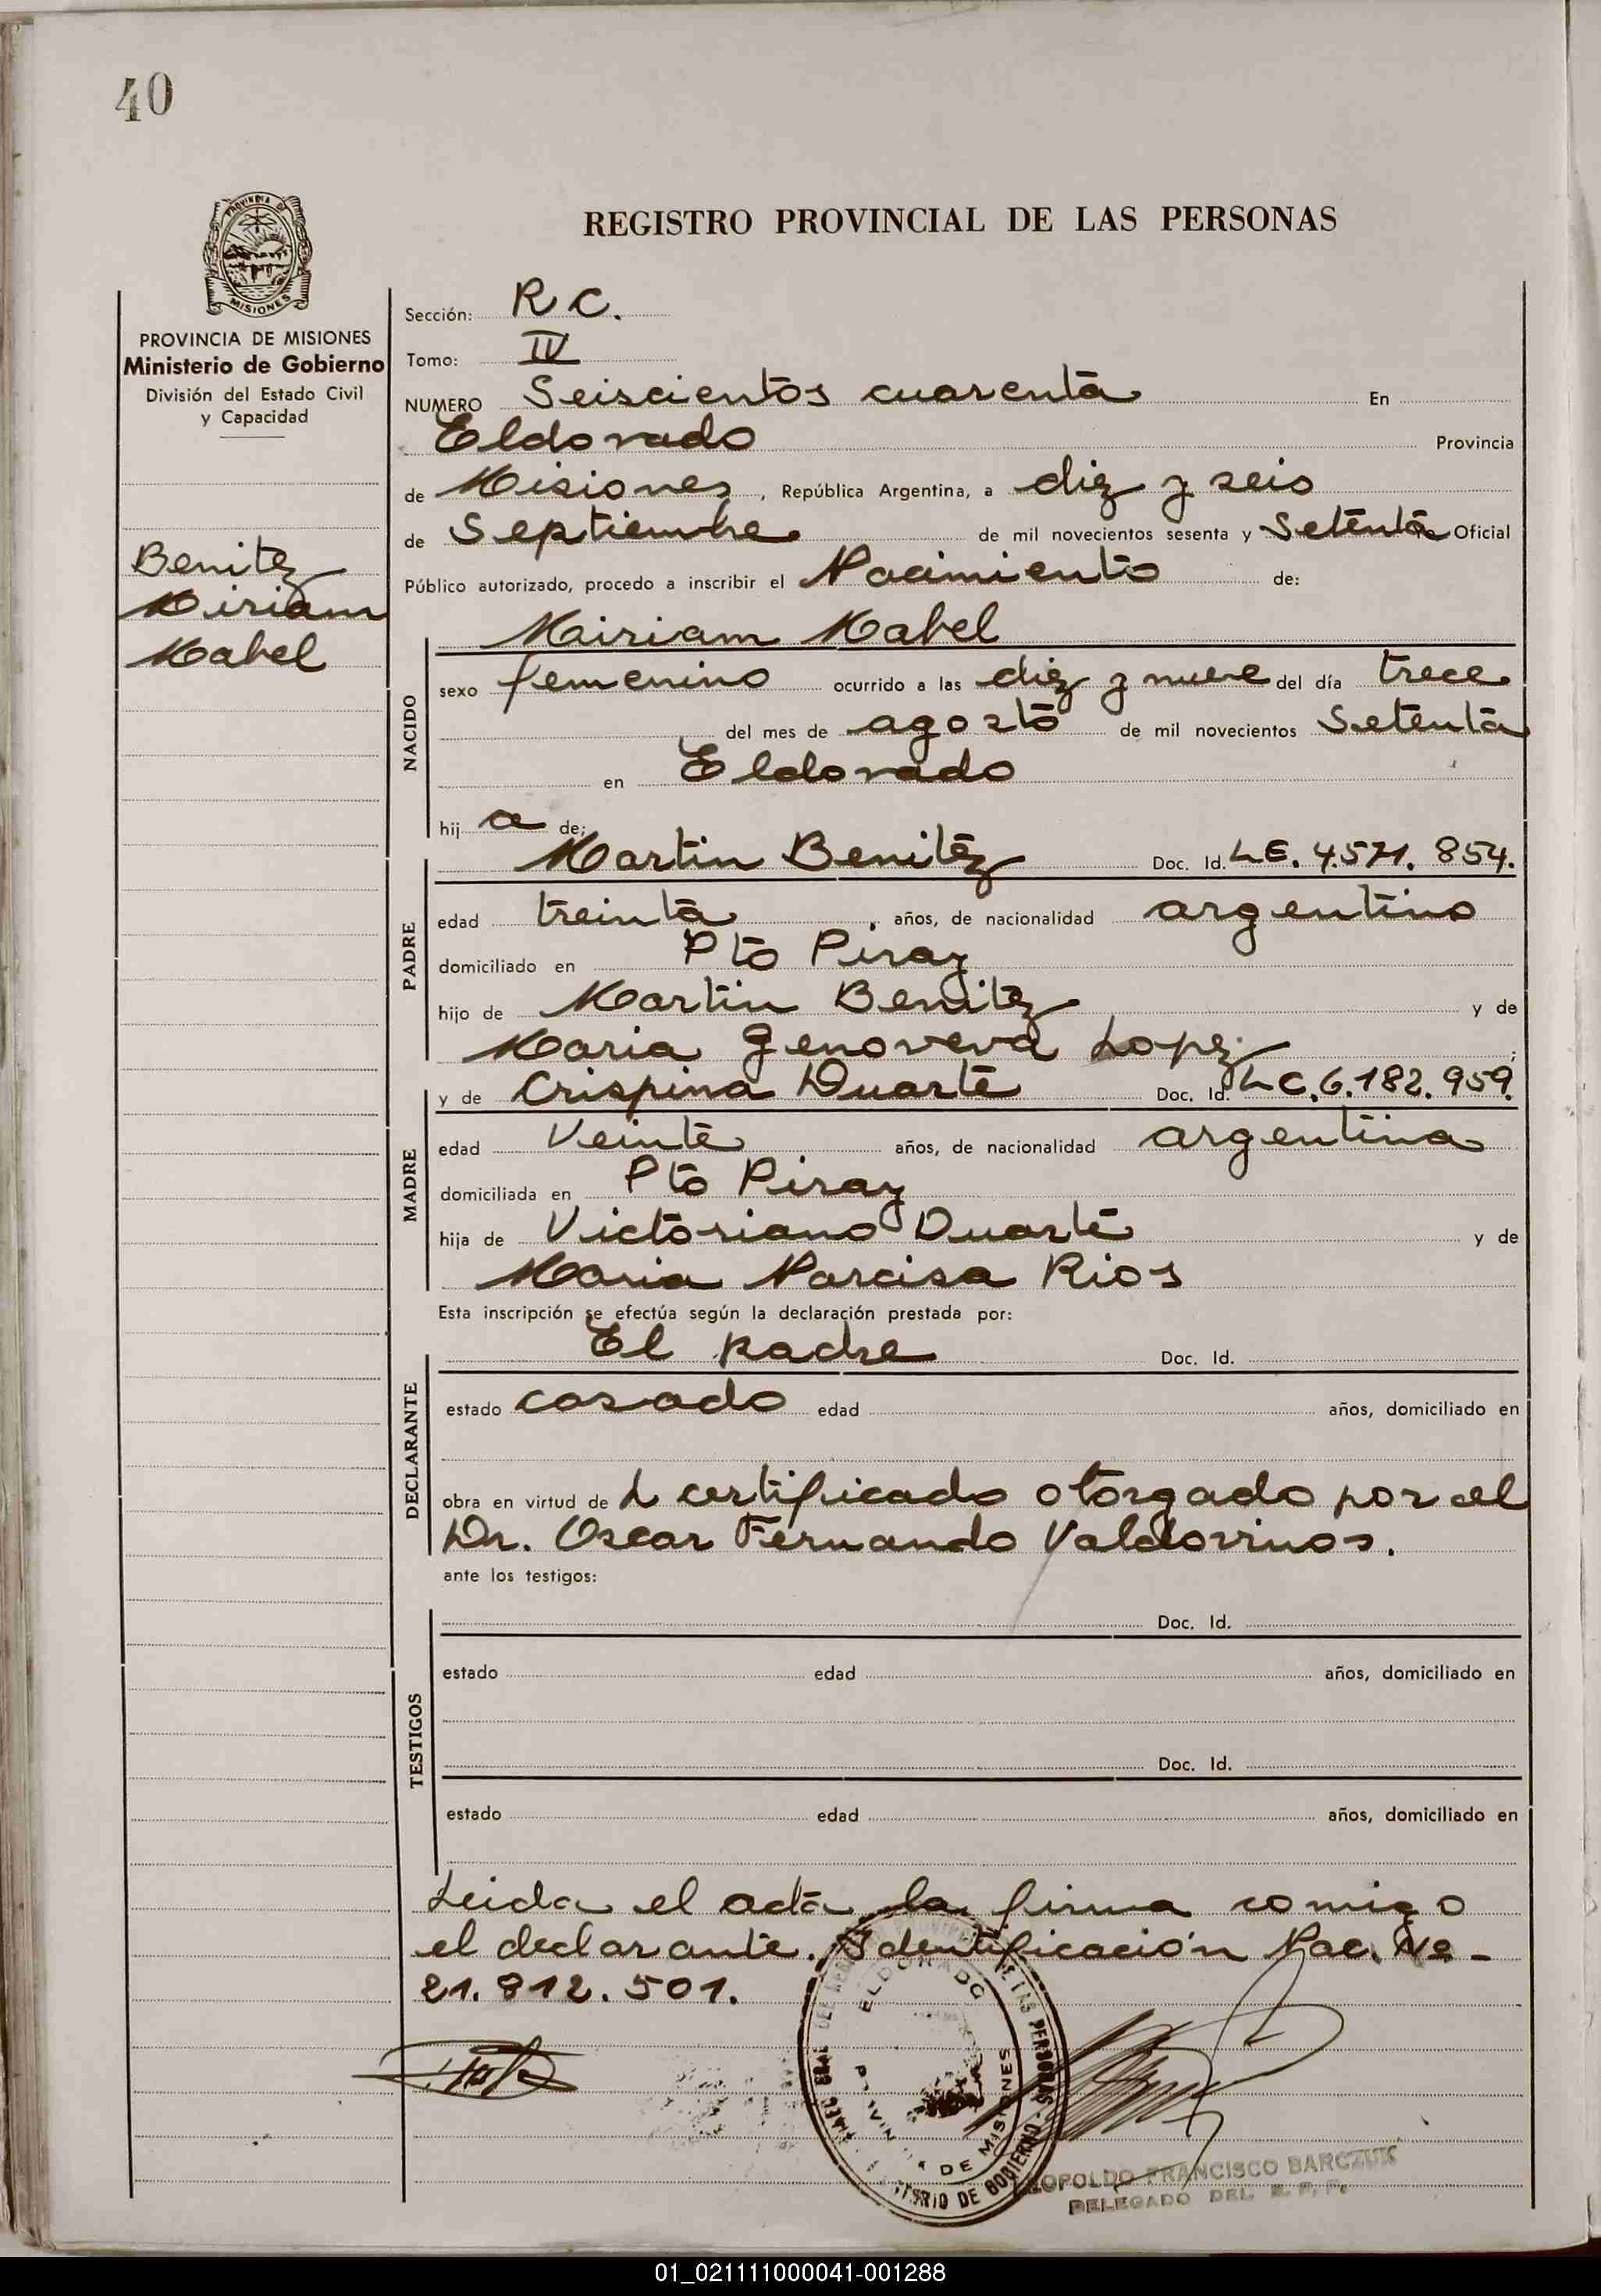 40
REGISTRO PROVINCIAL DE LAS PERSONAS
PROVINCIA DE MISIONES
Ministerio de Gobierno
División del Estado Civil
y Capacidad
Benitez
Miriam
Mabel
Sección: R C.
Tomo: IV
NUMERO Seiscientos cuarenta En
Eldorado Provincia
de Misiones, República Argentina, a diez y seis
de Septiembre de mil novecientos sesenta y Setenta Oficial
Público autorizado, procedo a inscribir el Nacimiento de:
Miriam Mabel
NACIDO
sexo femenino ocurrido a las diez y nueve del día trece
del mes de agosto de mil novecientos Setenta
en Eldorado
hij a de:
Martin Benitez Doc. Id. L.E. 4.571.854.
PADRE
edad treinta, años, de nacionalidad argentino
domiciliado en Pto Piray
hijo de Martin Benitez y de
Maria Genoveva Lopez;
y de Crispina Duarte Doc. Id. L.C. 6.182.959.
MADRE
edad Veinte años, de nacionalidad argentina
domiciliada en Pto Piray
hija de Victoriano Duarte y de
Maria Narcisa Rios
Esta inscripción se efectúa según la declaración prestada por:
El padre Doc. Id.
DECLARANTE
estado casado edad años, domiciliado en
obra en virtud de L certificado otorgado por el
Dr. Oscar Fernando Valdovinos.
ante los testigos:
Doc. Id.
TESTIGOS
estado edad años, domiciliado en
Doc. Id.
estado edad años, domiciliado en
Leida el acta la firma comigo
el declarante. Identificación Nac. Nº -
21.812.501.
ELDORADO
DE LAS PERSONAS - MINISTERIO DE GOBIERNO
PROVINCIA DE MISIONES
LEOPOLDO FRANCISCO BARCZUK
DELEGADO DEL R. P. P.
01_021111000041-001288